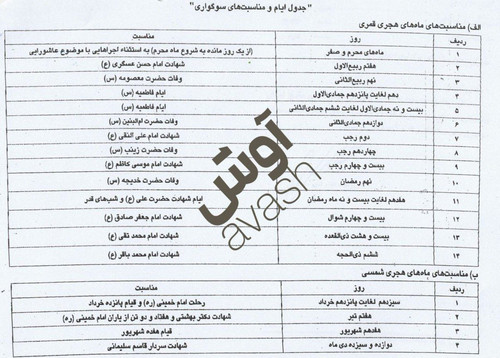 "جدول ایام و مناسبت‌های سوگواری"
الف) مناسبت‌های ماه‌های هجری قمری
ردیف روز مناسبت
۱ ماه‌های محرم و صفر (از یک روز مانده به شروع ماه محرم) به استثناء اجراهایی با موضوع عاشورایی
۲ هفتم ربیع‌الاول شهادت امام حسن عسکری (ع)
۳ نهم ربیع‌الثانی وفات حضرت معصومه (س)
۴ دهم لغایت پانزدهم جمادی‌الاول ایام فاطمیه (س)
۵ بیست و نه جمادی‌الاول لغایت ششم جمادی‌الثانی ایام فاطمیه (س)
۶ دوازدهم جمادی‌الثانی وفات حضرت ام‌البنین (س)
۷ دوم رجب شهادت امام علی النقی (ع)
۸ چهاردهم رجب وفات حضرت زینب (س)
۹ بیست و چهارم رجب شهادت امام موسی کاظم (ع)
۱۰ نهم رمضان وفات حضرت خدیجه (س)
۱۱ هفدهم لغایت بیست و نه ماه رمضان ایام شهادت حضرت علی (ع) و شب‌های قدر
۱۲ بیست و چهارم شوال شهادت امام جعفر صادق (ع)
۱۳ بیست و هشت ذی‌القعده شهادت امام محمد تقی (ع)
۱۴ ششم ذی‌الحجه شهادت امام محمد باقر (ع)
ب) مناسبت‌های ماه‌های هجری شمسی
ردیف روز مناسبت
۱ سیزدهم لغایت پانزدهم خرداد رحلت امام خمینی (ره) و قیام پانزده خرداد
۲ هفتم تیر شهادت دکتر بهشتی و هفتاد و دو تن از یاران امام خمینی (ره)
۳ هفدهم شهریور قیام هفده شهریور
۴ دوازده و سیزده دی ماه شهادت سردار قاسم سلیمانی
آوش
avash